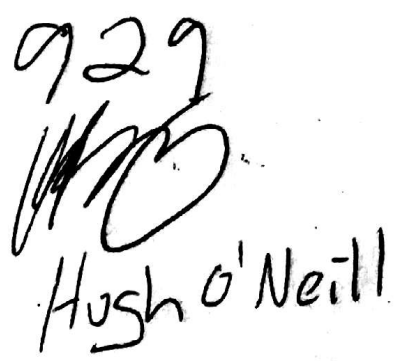 929
Hugh O'Neill